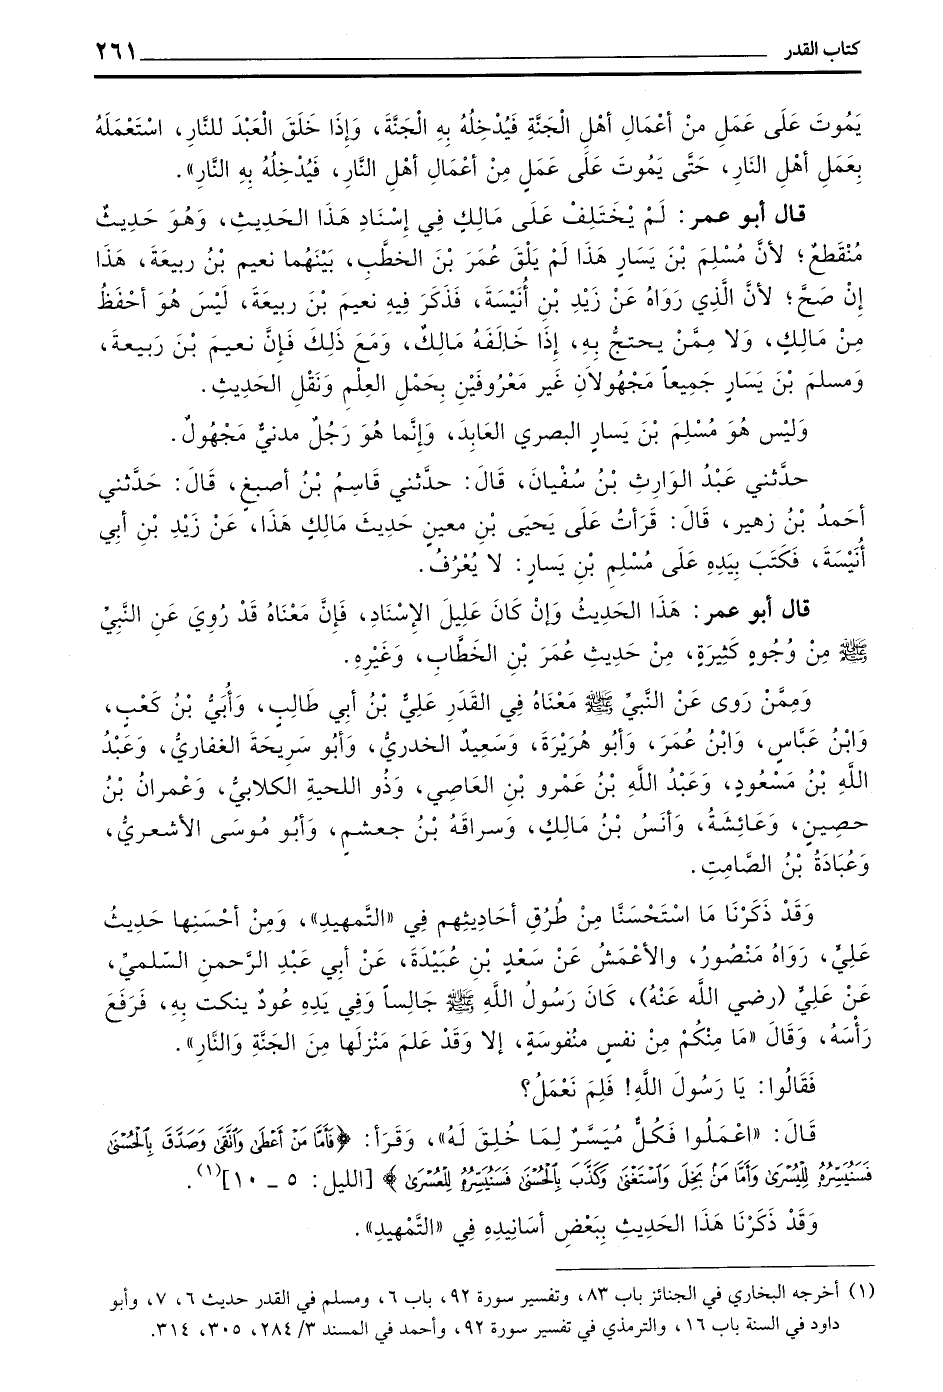 كتاب القدر ٢٦١
يَمُوتَ عَلَى عَمَلٍ منْ أعْمَالِ أهْلِ الْجَنَّةِ فَيُدْخِلُهُ بِهِ الْجَنَّةَ، وَإِذَا خَلَقَ الْعَبْدَ للنَّارِ، اسْتَعْمَلَهُ
بِعَمَلِ أهْلِ النَارِ، حَتَّى يَمُوتَ عَلَى عَمَلٍ مِنْ أعْمَالِ أهْلِ النَّارِ، فَيُدْخِلُهُ بِهِ النَّارِ».
قال أبو عمر: لَمْ يُخْتَلِفْ عَلَى مَالِكٍ فِي إسْنَادِ هَذَا الحَدِيثِ، وَهُوَ حَدِيثٌ
مُنْقَطعٌ؛ لأنَّ مُسْلِمَ بْنَ يَسَارٍ هَذَا لَمْ يَلْقَ عُمَرَ بْنَ الخطَّب، بَيْنَهُما نعيم بْنُ ربيعَةَ، هَذَا
إنْ صَحَّ؛ لأنَّ الَّذِي رَوَاهُ عَنْ زَيْدِ بْنِ أُنَيْسَةَ، فَذَكَرَ فِيهِ نعيمَ بْنَ ربيعَةَ، لَيْسَ هُوَ أحْفَظُ
مِنْ مَالِكٍ، وَلا مِمَّنْ يحتجُّ بِهِ، إذَا خَالَفَهُ مَالِكٌ، وَمَعَ ذَلِكَ فَإنَّ نعيمَ بْنَ رَبيعة،
وَمسلمَ بْنَ يَسَارٍ جَميعاً مَجْهُولاَنِ غَير مَعْرُوفَيْنِ بِحَمْلِ العِلْمِ وَنَقْلِ الحَدِيثِ.
وَلَيْس هُوَ مُسْلِمَ بْنَ يَسارٍ البصري العَابِدَ، وَإنَّما هُوَ رَجُلٌ مدنيٌّ مَجْهُولٌ.
حدَّثني عَبْدُ الوَارِثِ بْنُ سُفْيانَ، قَالَ: حدَّثني قَاسِمُ بْنُ أصبغٍ، قَالَ: حَدَّثني
أحَمدُ بْنُ زهير، قَالَ: قَرَأتُ عَلَى يَحيَى بْنِ معينٍ حَدِيثَ مَالِكٍ هَذَا، عَنْ زَيْدِ بْنِ أبي
أُنَيْسَةَ، فَكَتَبَ بِيَدِهِ عَلَى مُسْلِمِ بْنِ يَسارٍ: لا يُعْرَفُ.
قال أبو عمر: هَذَا الحَديثُ وَإنْ كَانَ عَلِيلَ الإسْنَادِ، فَإنَّ مَعْنَاهُ قَدْ رُوِيَ عَنِ النَّبيِّ
ﷺ مِنْ وُجُوهٍ كَثِيرَةٍ، مِنْ حَدِيثِ عُمَرَ بْنِ الخَطَّابِ، وَغَيْرِهِ.
وَمِمَّنْ رَوى عَنْ النَّبيِّ ﷺ مَعْنَاهُ فِي القَدَرِ عَلِيُّ بْنُ أبي طَالِبٍ، وَأُبَيُّ بْنُ كَعْبٍ،
وَابْنُ عَبَّاسٍ، وَابْنُ عُمَرَ، وَأبو هُرَيْرَةَ، وَسَعِيدٌ الخدريُّ، وَأبو سَرِيحَةَ الغفاريُّ، وَعَبْدُ
اللَّهِ بْنُ مَسْعُودٍ، وَعَبْدُ اللَّهِ بْنُ عَمْرِو بْنِ العَاصِي، وَذُو اللحيةِ الكلابيُّ، وَعْمرانُ بْنُ
حصينٍ، وَعَائِشَةُ، وَأنَسُ بْنُ مَالِكٍ، وَسراقَهُ بْنُ جعشمٍ، وَأبُو مُوسَى الأشعريُّ،
وَعُبَادَةُ بْنُ الصَّامِتِ.
وَقَدْ ذَكَرْنَا مَا اسْتَحْسَنَّا مِنْ طُرُقِ أحَادِيثِهم فِي «التَّمهيدِ»، وَمِنْ أحْسَنِها حَدِيثُ
عَلِيٍّ، رَوَاهُ مَنْصُورٌ، والأعْمَشُ عَنْ سَعْدِ بْنِ عُبَيْدَةَ، عَنْ أبي عَبْدِ الرَّحمنِ السّلميِّ،
عَنْ عَلِيٍّ (رضي اللَّه عَنْهُ)، كَانَ رَسُولُ اللَّهِ ﷺ جَالِساً وَفي يَدِهِ عُودٌ ينكت بِهِ، فَرَفَعَ
رَأسَهُ، وَقَالَ «مَا مِنْكُمْ مِنْ نفسٍ منْفوسَةٍ، إلا وَقَدْ علمَ مَنْزلَها مِنَ الجَنَّةِ وَالنَّارِ».
فَقَالُوا: يَا رَسُولَ اللَّهِ! فَلِمَ نَعْمَلُ؟
قَالَ: «اعْمَلُوا فَكُلٌّ مُيَسَّرٌ لِمَا خُلِقَ لَهُ»، وَقَرأَ: ﴿فَأَمَّا مَنْ أَعْطَى وَاتَّقَى وَصَدَّقَ بِالْحُسْنَى
فَسَنُيَسِّرُهُ لِلْيُسْرَى وَأَمَّا مَنْ بَخِلَ وَاسْتَغْنَى وَكَذَّبَ بِالْحُسْنَى فَسَنُيَسِّرُهُ لِلْعُسْرَى﴾ [الليل: ٥ ـ ١٠](١).
وَقَدْ ذَكَرْنَا هَذَا الحَدِيثِ بِبَعْضِ أسَانِيدِهِ فِي «التَّمْهِيدِ».
(١) أخرجه البخاري في الجنائز باب ٨٣، وتفسير سورة ٩٢، باب ٦، ومسلم في القدر حديث ٦، ٧، وأبو
داود في السنة باب ١٦، والترمذي في تفسير سورة ٩٢، وأحمد في المسند ٣/ ٢٨٤، ٣٠٥، ٣١٤.